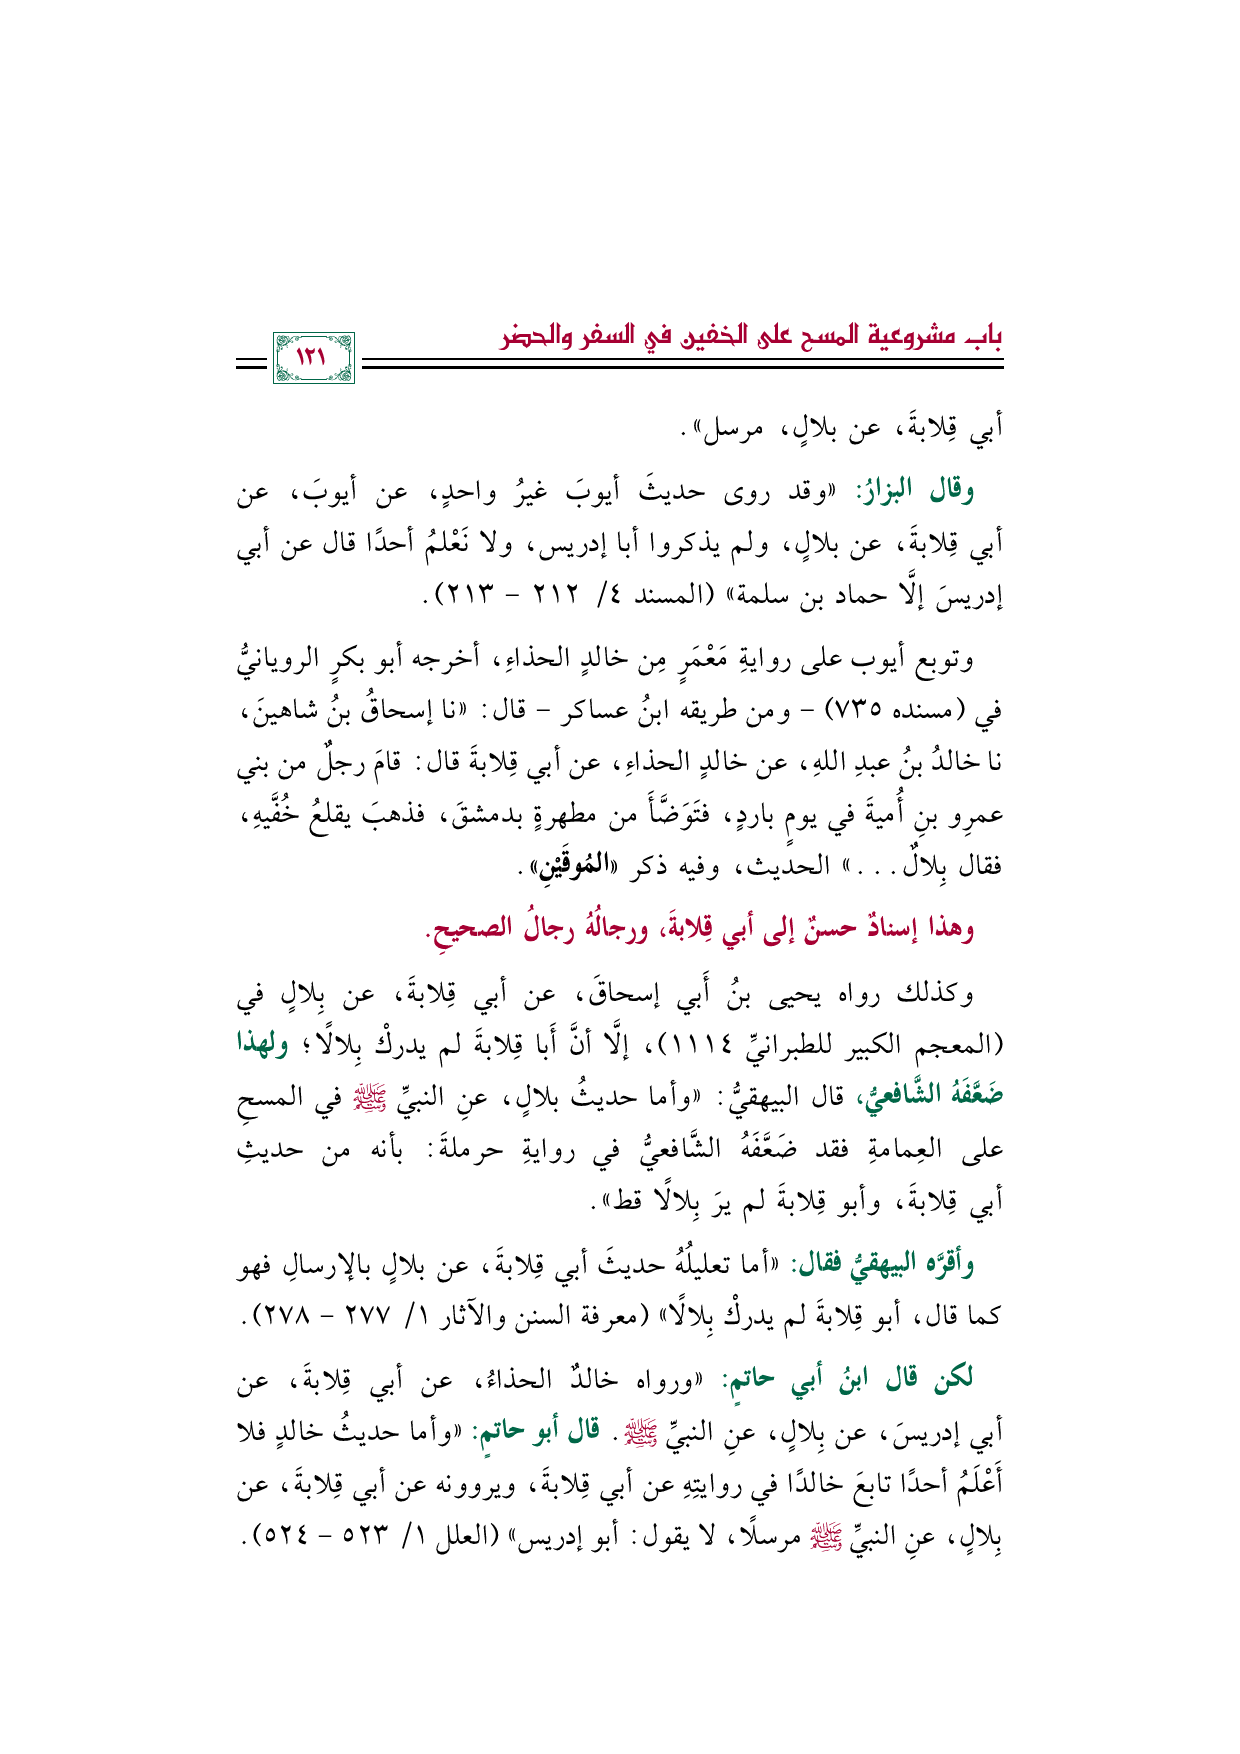 باب مشروعية المسح على الخفين في السفر والحضر
١٢١
أبي قِلابةَ، عن بلالٍ، مرسل».
وقال البزارُ: «وقد روى حديثَ أيوبَ غيرُ واحدٍ، عن أيوبَ، عن
أبي قِلابةَ، عن بلالٍ، ولم يذكروا أبا إدريس، ولا نَعْلمُ أحدًا قال عن أبي
إدريسَ إلَّا حماد بن سلمة» (المسند ٤/ ٢١٢ - ٢١٣).
وتوبع أيوب على روايةِ مَعْمَرٍ مِن خالدٍ الحذاءِ، أخرجه أبو بكرٍ الرويانيُّ
في (مسنده ٧٣٥) - ومن طريقه ابنُ عساكر - قال: «نا إسحاقُ بنُ شاهينَ،
نا خالدُ بنُ عبدِ اللهِ، عن خالدٍ الحذاءِ، عن أبي قِلابةَ قال: قامَ رجلٌ من بني
عمرِو بنِ أُميةَ في يومٍ باردٍ، فتَوَضَّأَ من مطهرةٍ بدمشقَ، فذهبَ يقلعُ خُفَّيهِ،
فقال بِلالٌ...» الحديث، وفيه ذكر «المُوقَيْنِ».
وهذا إسنادٌ حسنٌ إلى أبي قِلابةَ، ورجالُهُ رجالُ الصحيحِ.
وكذلك رواه يحيى بنُ أَبي إسحاقَ، عن أبي قِلابةَ، عن بِلالٍ في
(المعجم الكبير للطبرانيِّ ١١١٤)، إلَّا أنَّ أَبا قِلابةَ لم يدركْ بِلالًا؛ ولهذا
ضَعَّفَهُ الشَّافعيُّ، قال البيهقيُّ: «وأما حديثُ بلالٍ، عنِ النبيِّ ﷺ في المسحِ
على العِمامةِ فقد ضَعَّفَهُ الشَّافعيُّ في روايةِ حرملةَ: بأنه من حديثِ
أبي قِلابةَ، وأبو قِلابةَ لم يرَ بِلالًا قط».
وأقرَّه البيهقيُّ فقال: «أما تعليلُهُ حديثَ أبي قِلابةَ، عن بلالٍ بالإرسالِ فهو
كما قال، أبو قِلابةَ لم يدركْ بِلالًا» (معرفة السنن والآثار ١/ ٢٧٧ - ٢٧٨).
لكن قال ابنُ أبي حاتمٍ: «ورواه خالدٌ الحذاءُ، عن أبي قِلابةَ، عن
أبي إدريسَ، عن بِلالٍ، عنِ النبيِّ ﷺ. قال أبو حاتمٍ: «وأما حديثُ خالدٍ فلا
أَعْلَمُ أحدًا تابعَ خالدًا في روايتِهِ عن أبي قِلابةَ، ويروونه عن أبي قِلابةَ، عن
بِلالٍ، عنِ النبيِّ ﷺ مرسلًا، لا يقول: أبو إدريس» (العلل ١/ ٥٢٣ - ٥٢٤).